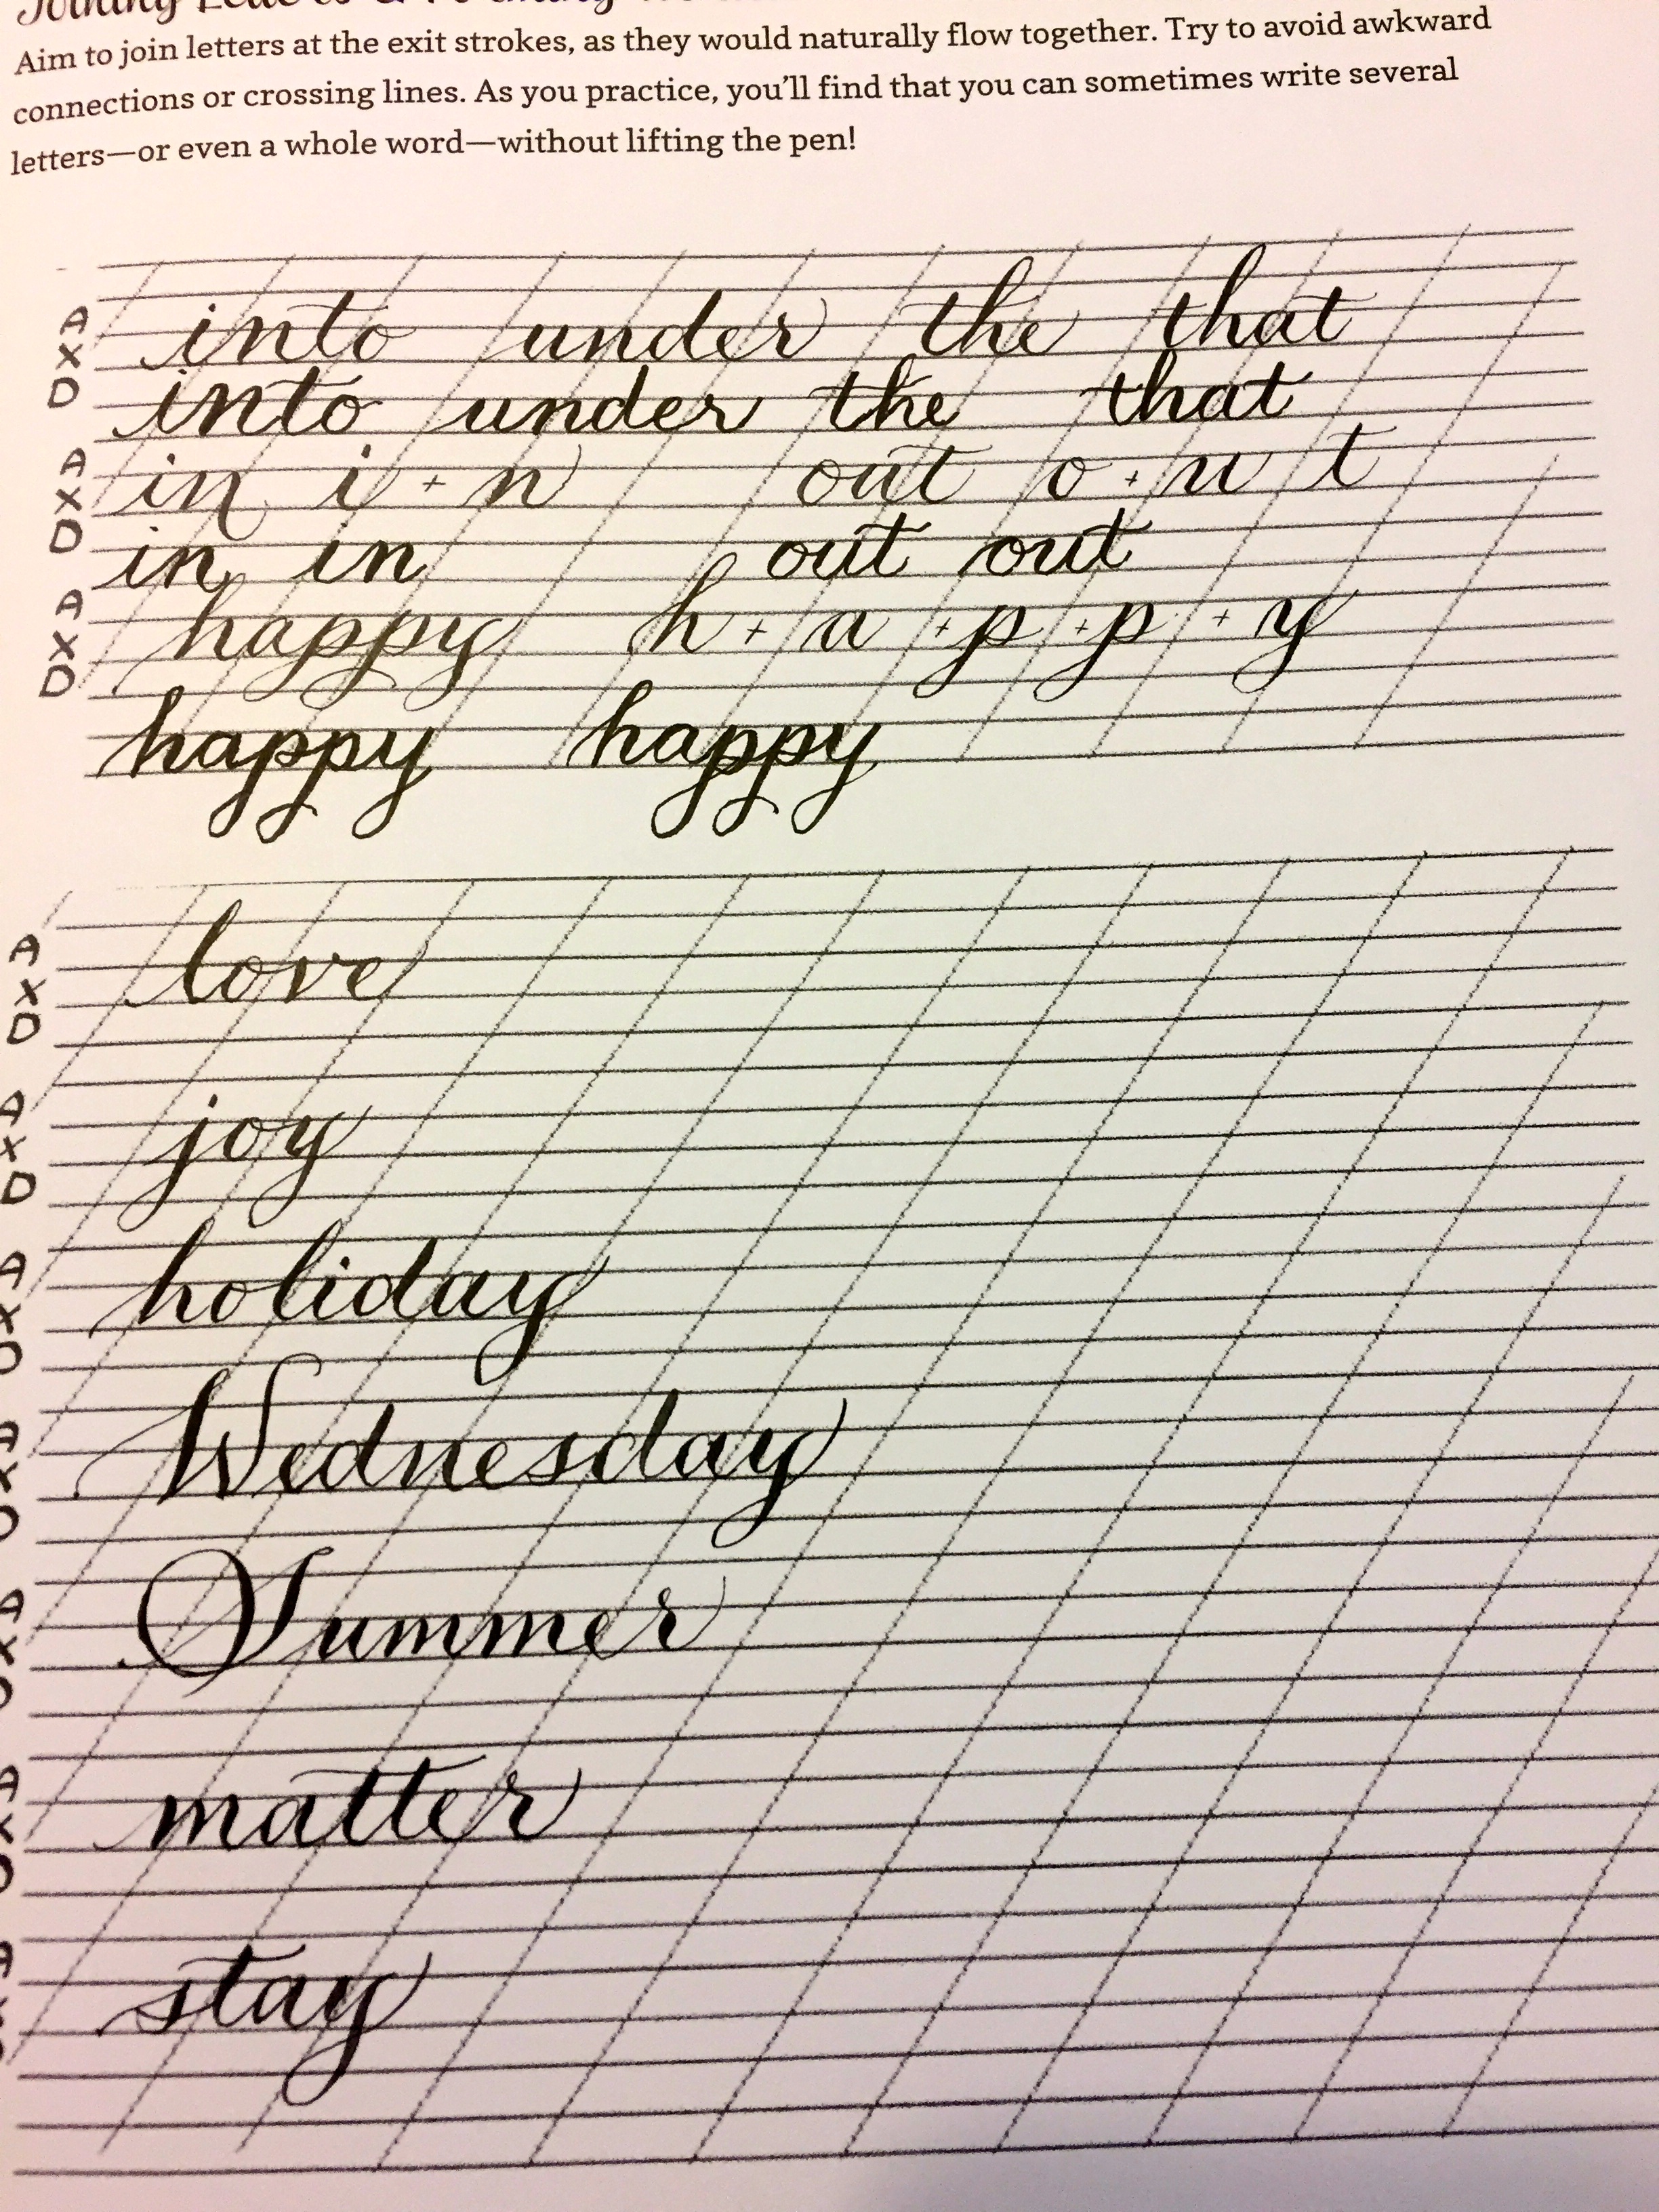 Joining Letters &
Aim to join letters at the exit strokes, as they would naturally flow together. Try to avoid awkward
connections or crossing lines. As you practice, you'll find that you can sometimes write several
letters—or even a whole word—without lifting the pen!
A
X into under the that
D into under the that
A
X in i + n out o + u t
D in in out out
A
X happy h + a + p + p + y
D
happy happy
A
X love
D
A
X joy
D
A
X holiday
D
A
X Wednesday
D
A
X Summer
D
A
X matter
D
A
stay